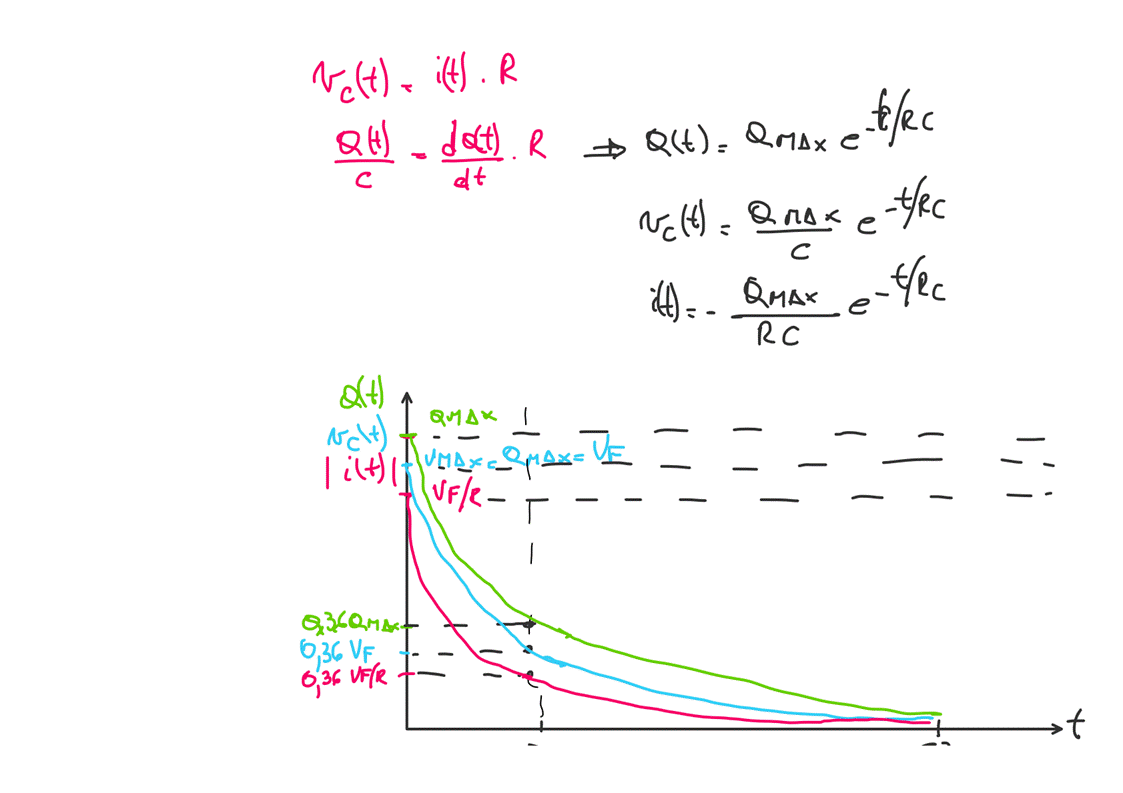 vc(t) = i(t) . R
Q(t)/C = dQ(t)/dt . R ⇒ Q(t) = QMAX e^-t/RC
vc(t) = QMAX/C e^-t/RC
i(t) = - QMAX/RC e^-t/RC
Q(t)
QMAX
vc(t)
VMAX = QMAX = VF
|i(t)|
VF/R
0,36QMAX
0,36 VF
0,36 VF/R
t